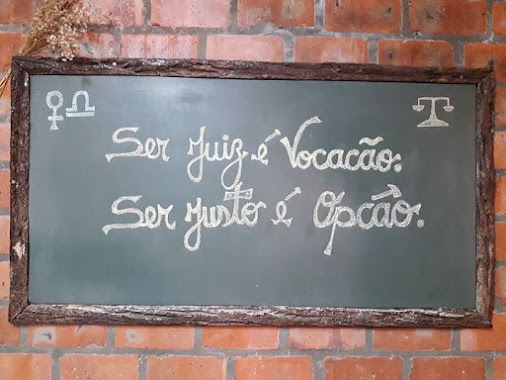 Ser Juiz é Vocacão.
Ser Justo é Opcão.